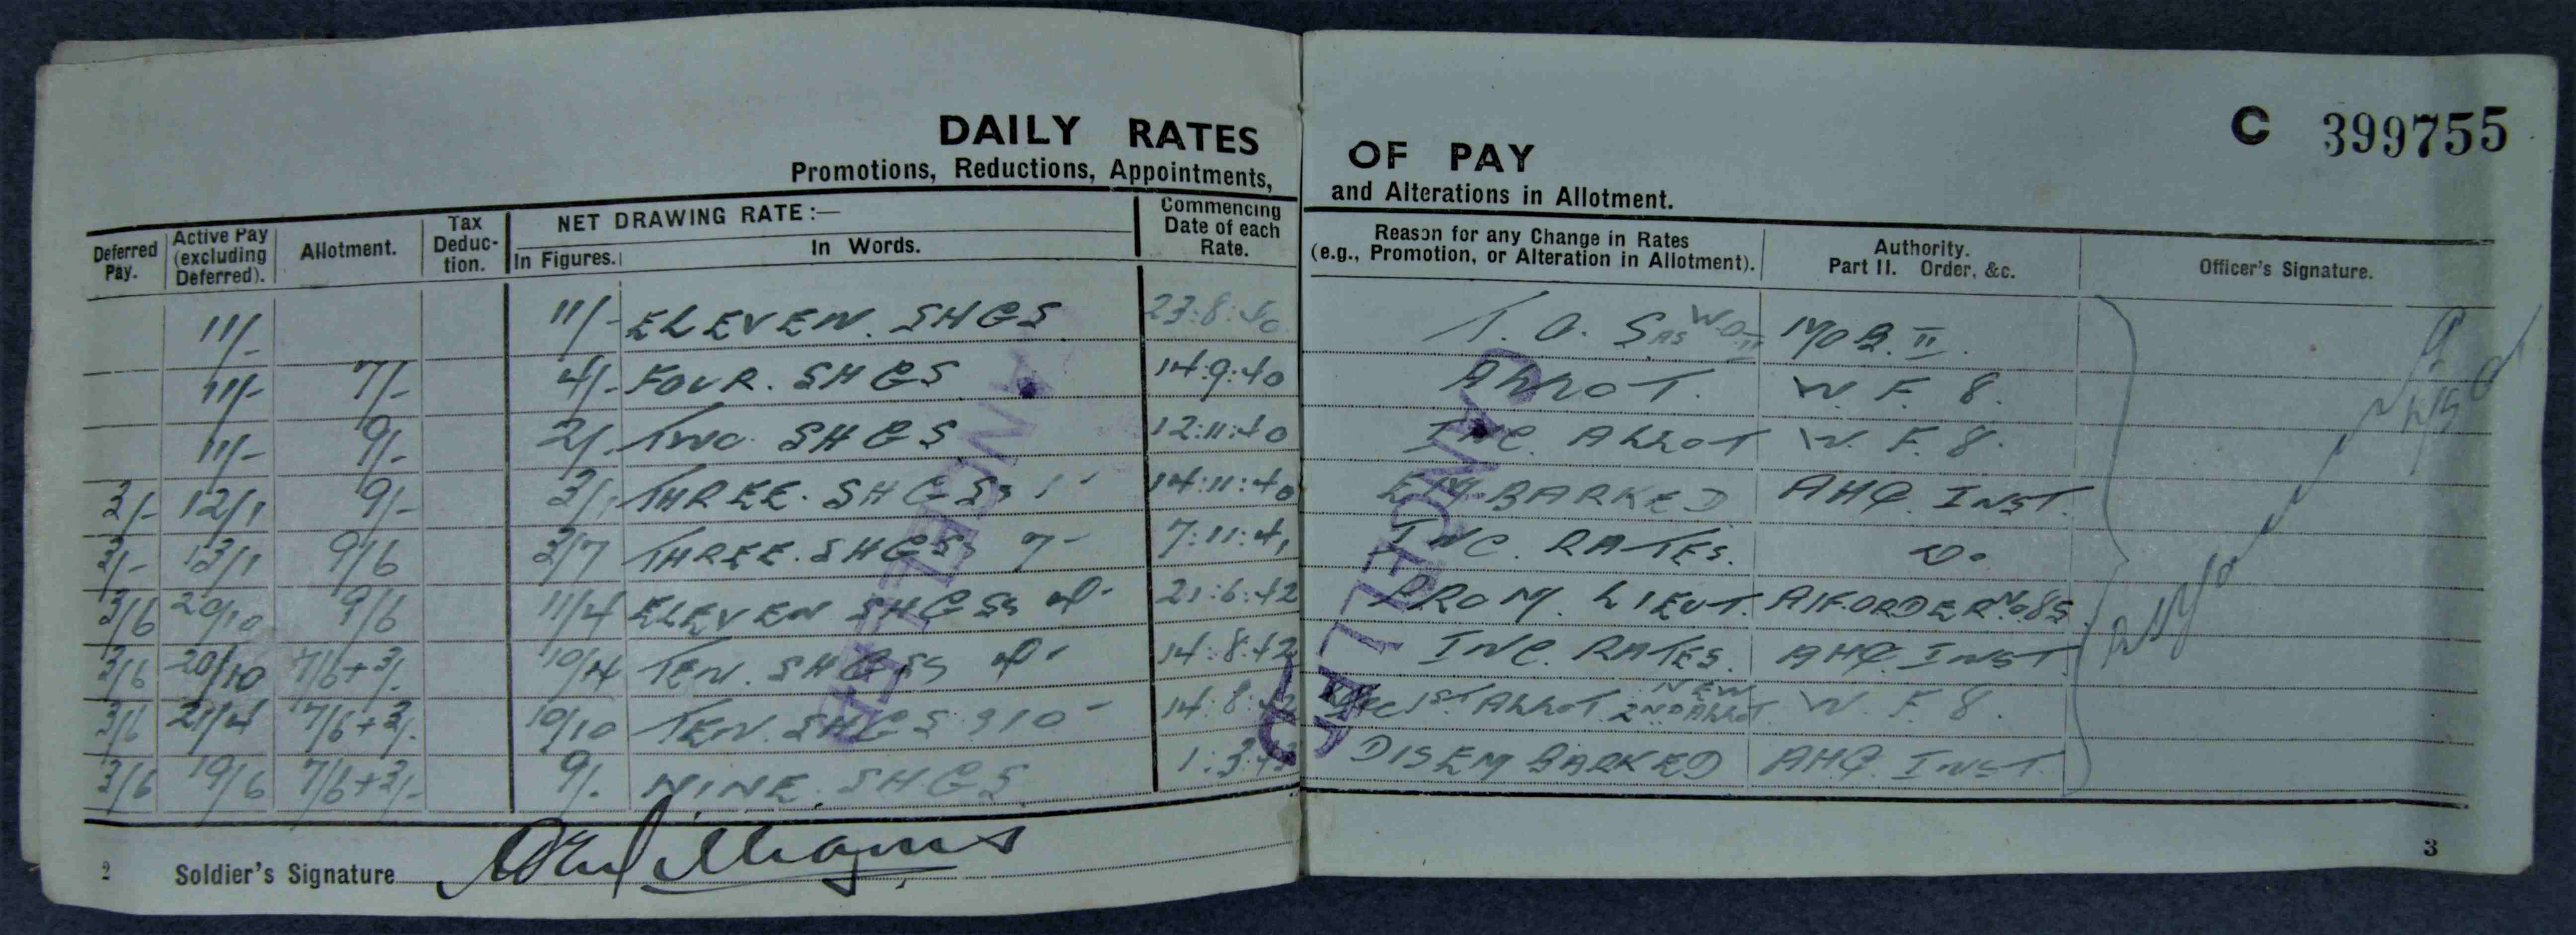 DAILY RATES OF PAY
C 399755
Promotions, Reductions, Appointments, and Alterations in Allotment.
Deferred Pay. Active Pay (excluding Deferred). Allotment. Tax Deduc- tion. NET DRAWING RATE :— In Figures. In Words. Commencing Date of each Rate. Reason for any Change in Rates (e.g., Promotion, or Alteration in Allotment). Authority. Part II. Order, &c. Officer's Signature.
11/- 11/- ELEVEN. SHGS 23:8:40 T.O.S. AS W.O.II MOB. II.
11/- 7/- 4/- FOUR. SHGS 14:9:40 ALLOT. W.F.8.
11/- 9/- 2/- TWO. SHGS 12:11:40 INC. ALLOT W.F.8.
2/- 12/1 9/- 3/1 THREE. SHGS 1- 14:11:40 EMBARKED AHQ. INST.
2/- 13/1 9/6 3/7 THREE. SHGS 7- 7:11:41 INC. RATES. DO
3/6 20/10 9/6 11/4 ELEVEN SHGS 4- 21:6:42 PROM. LIEUT. AIF ORDER No. 85
3/6 20/10 7/6+3/- 10/4 TEN. SHGS 4- 14:8:42 INC. RATES. AHQ. INST
3/6 21/4 7/6+3/- 10/10 TEN. SHGS 10- 14:8:42 1ST ALLOT NEW 2ND ALLOT W.F.8.
3/6 19/6 7/6+3/- 9/- NINE. SHGS 1:3:43 DISEMBARKED AHQ. INST.
CANCELLED
CANCELLED
2 Soldier's Signature Williams
3